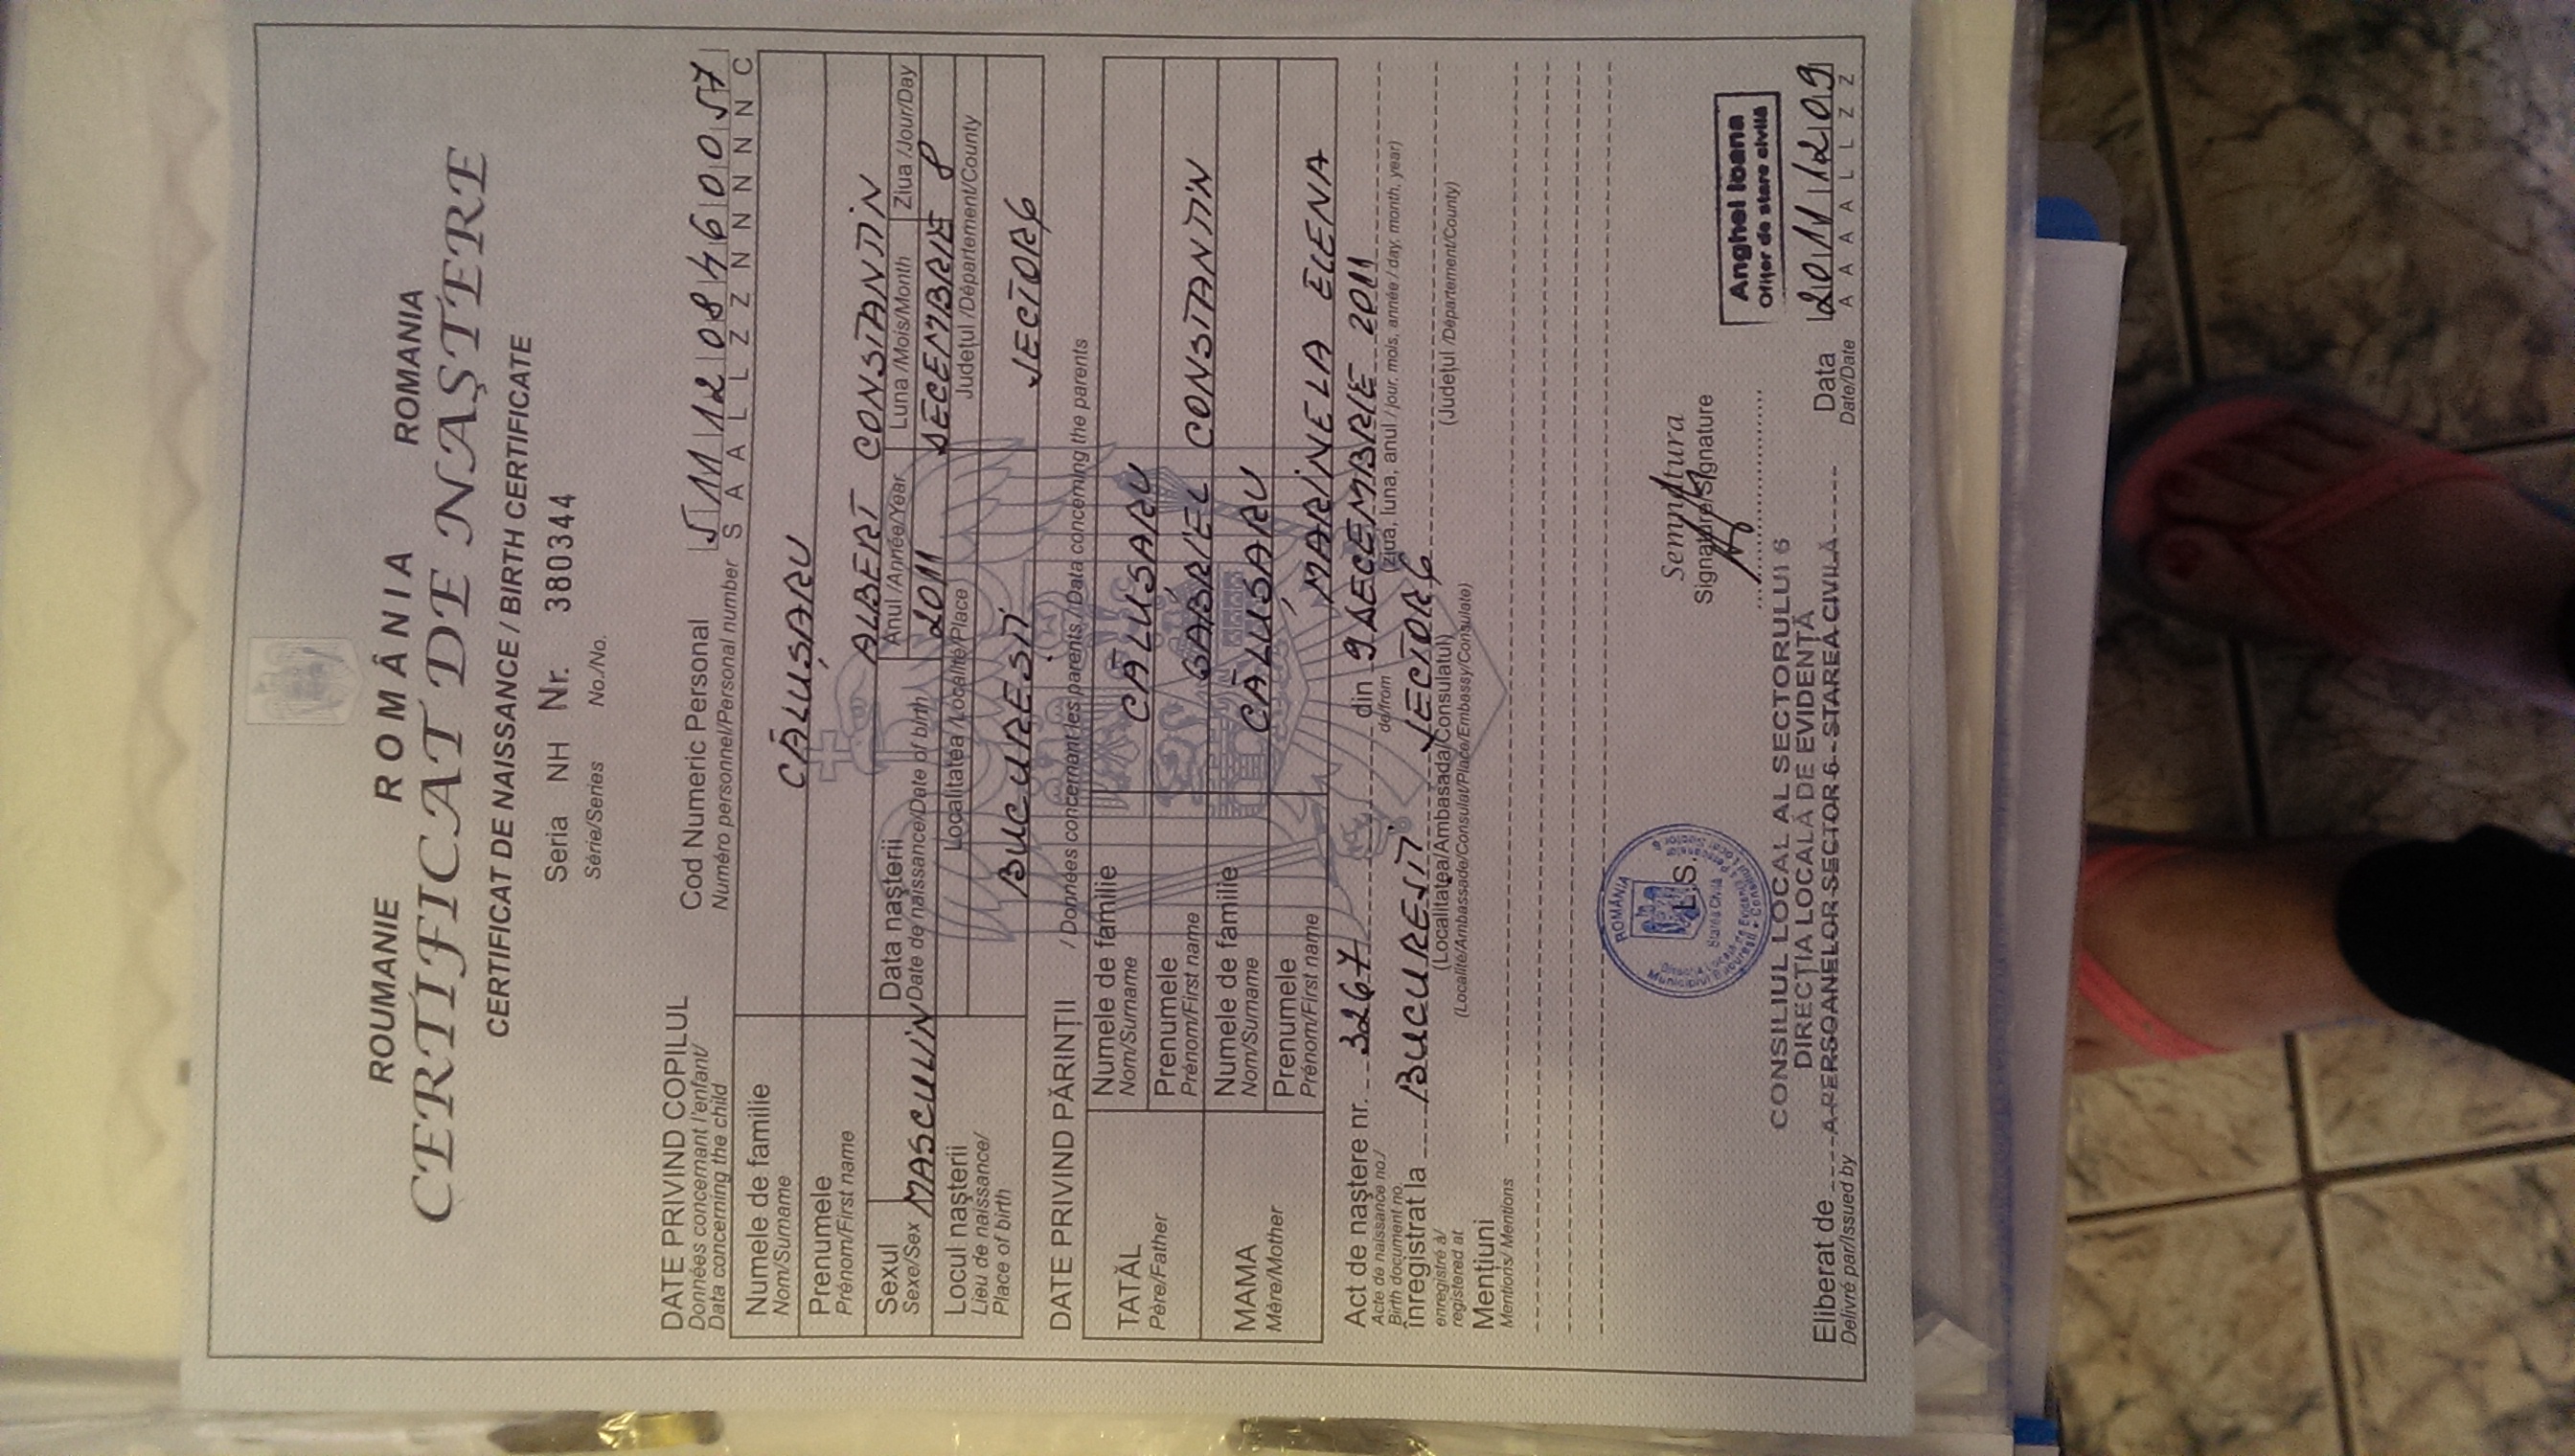 ROUMANIE ROMÂNIA ROMANIA
CERTIFICAT DE NAŞTERE
CERTIFICAT DE NAISSANCE / BIRTH CERTIFICATE
Seria NH Nr. 380344
Série/Series No./No.
DATE PRIVIND COPILUL Cod Numeric Personal 5111208460057
Données concernant l'enfant/ Numéro personnel/Personal number S A A L L Z Z N N N N N C
Data concerning the child
Numele de familie CĂLUȘARU
Nom/Surname
Prenumele ALBERT CONSTANTIN
Prénom/First name
Sexul MASCULIN Data naşterii Anul /Année/Year Luna /Mois/Month Ziua /Jour/Day
Sexe/Sex Date de naissance/Date of birth 2011 DECEMBRIE 8
Locul naşterii Localitatea /Localité/Place Judeţul /Département/County
Lieu de naissance/
Place of birth BUCUREȘTI SECTOR 6
DATE PRIVIND PĂRINŢII / Données concernant les parents / Data concerning the parents
TATĂL Numele de familie CĂLUȘARU
Père/Father Nom/Surname
Prenumele GABRIEL CONSTANTIN
Prénom/First name
MAMA Numele de familie CĂLUȘARU
Mère/Mother Nom/Surname
Prenumele MARINELA ELENA
Prénom/First name
Act de naştere nr. 3267 din 9 DECEMBRIE 2011
Acte de naissance no./ de/from (ziua, luna, anul / jour, mois, année / day, month, year)
Birth document no.
înregistrat la BUCUREȘTI SECTOR 6
enregistré à/ (Localitatea/Ambasada/Consulatul) (Judeţul /Département/County)
registered at (Localité/Ambassade/Consulat/Place/Embassy/Consulate)
Menţiuni
Mentions/ Mentions
Semnătura
Signature/Signature
Anghel Ioana
Ofiţer de stare civilă
ROMÂNIA
L.S.
Starea Civilă
CONSILIUL LOCAL AL SECTORULUI 6
DIRECŢIA LOCALĂ DE EVIDENŢĂ
Eliberat de A PERSOANELOR SECTOR 6 - STAREA CIVILĂ Data 20111209
Delivré par/Issued by Date/Date A A A A L L Z Z